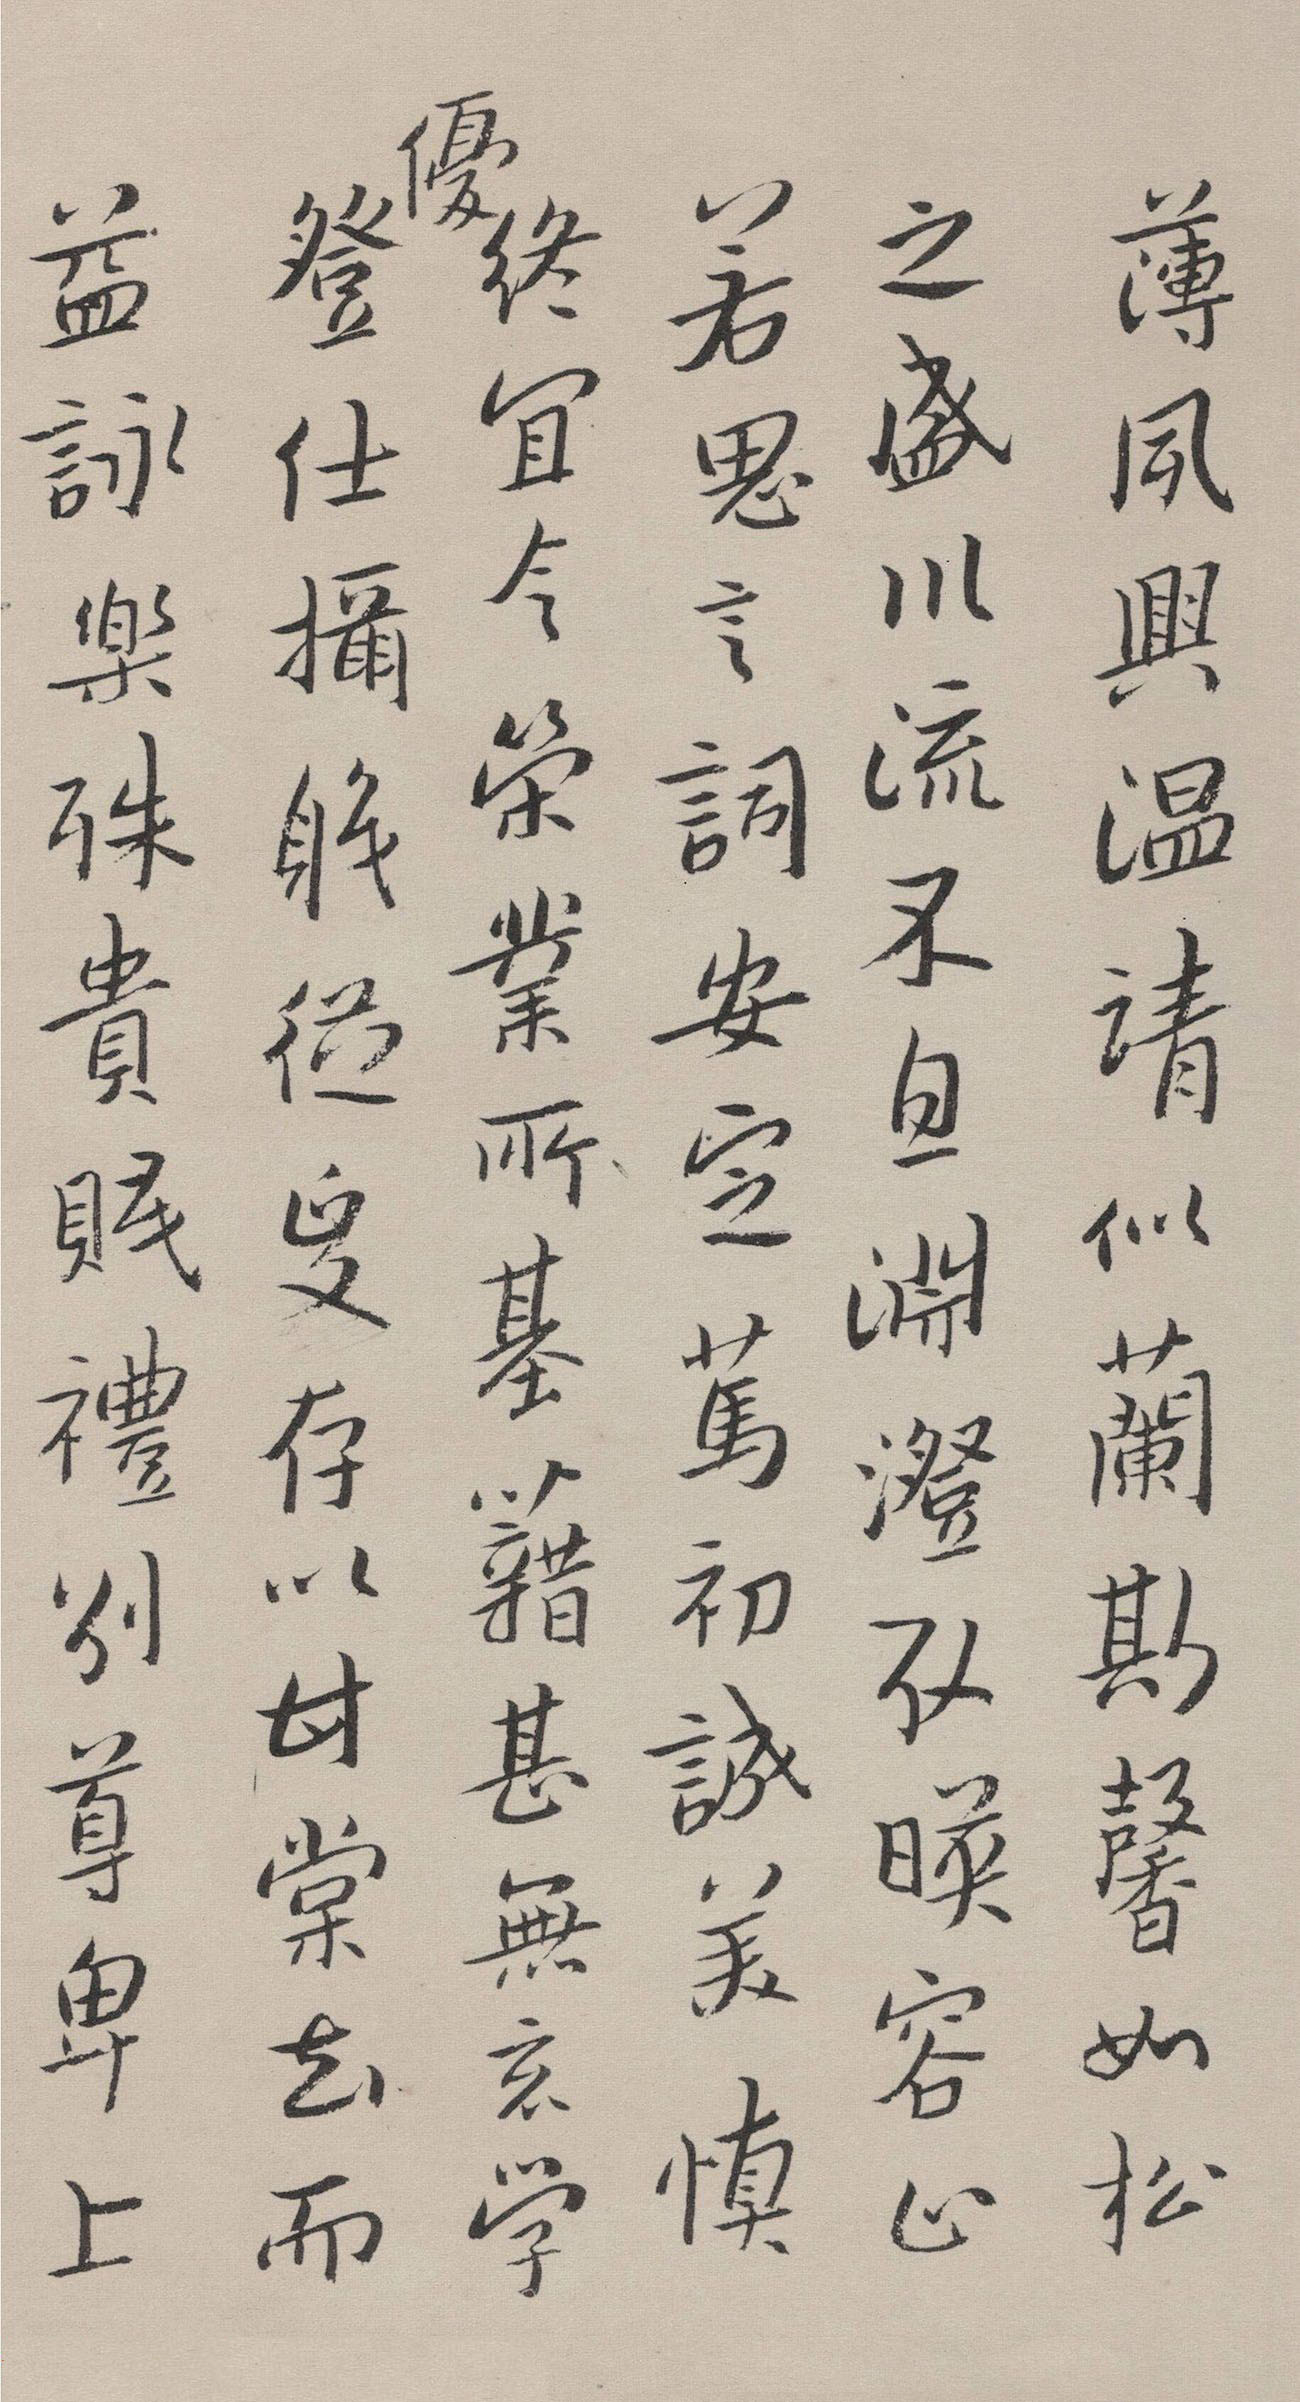 薄夙興温請似蘭斯馨如松
之盛川流不息淵澄取暎容止
若思言詞安定篤初誠美慎
終宜令榮業所基籍甚無竟学
優
登仕攝職從政存以甘棠去而
益詠樂殊貴賤禮別尊卑上